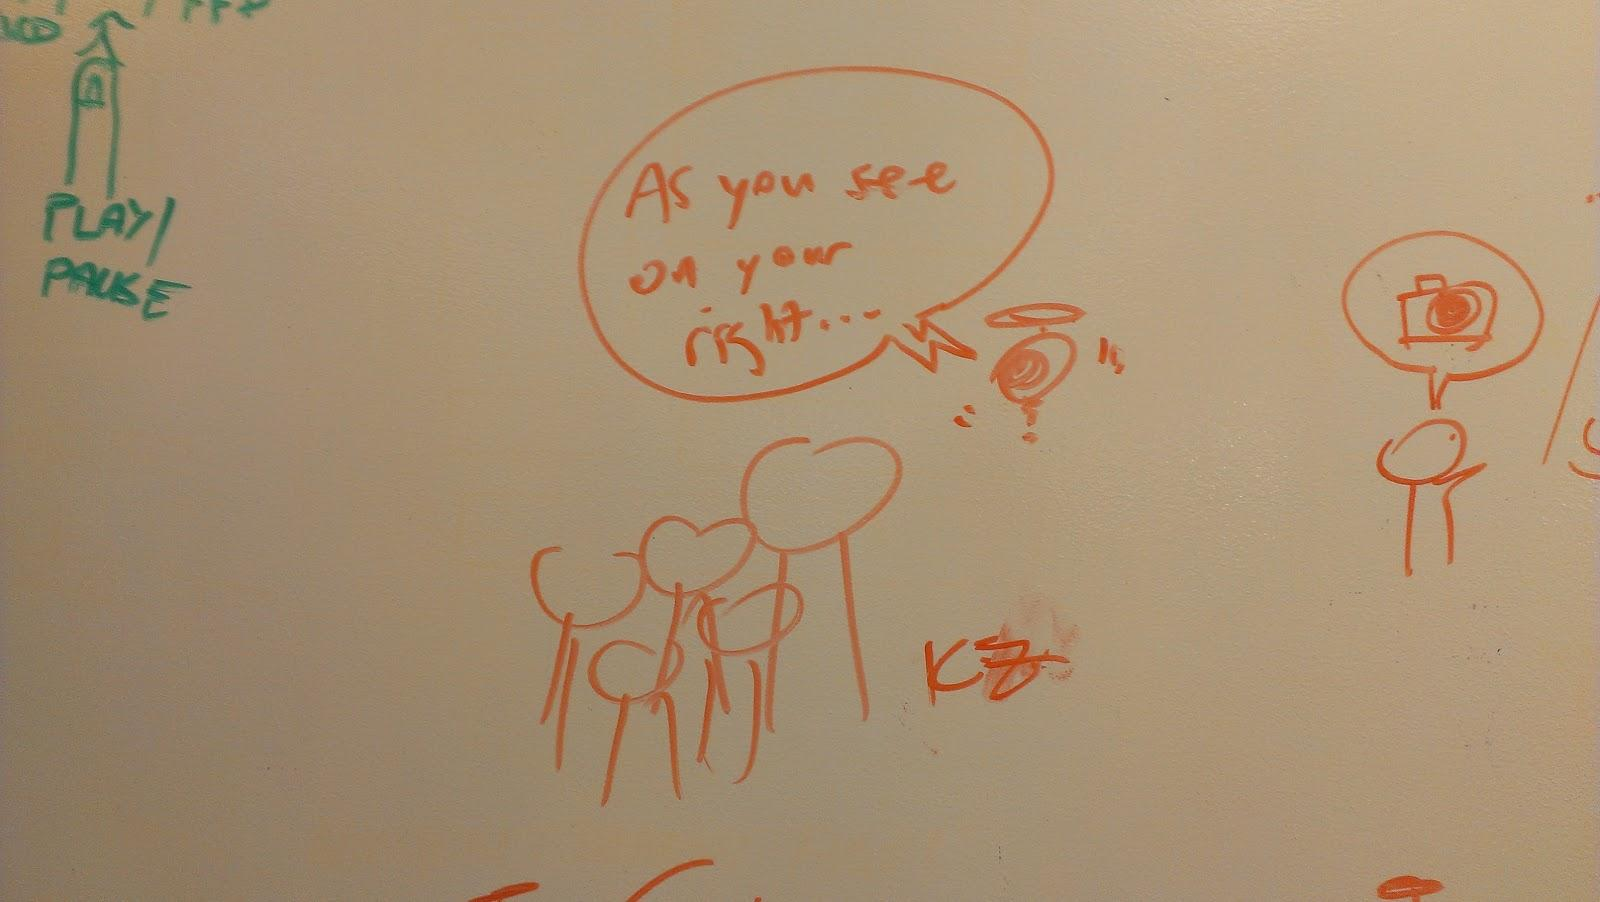 PLAY/
PAUSE
As you see
on your
right...